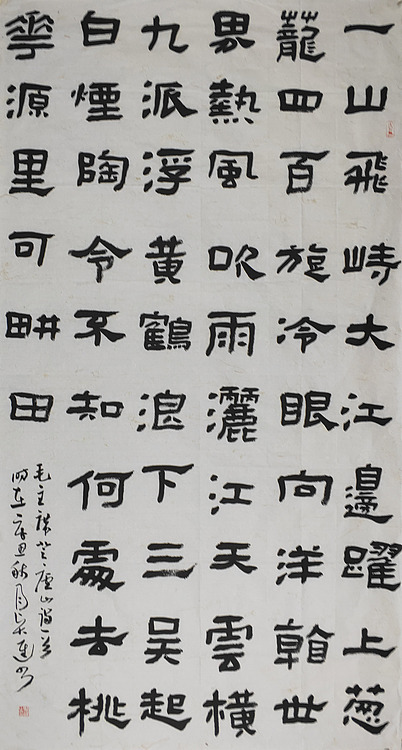 一山飛峙大江邊躍上葱
蘢四百旋冷眼向洋看世
界熱風吹雨灑江天雲橫
九派浮黃鶴浪下三吳起
白煙陶令不知何處去桃
華源里可畊田
毛主席登廬山詩一首
時在辛丑秋月